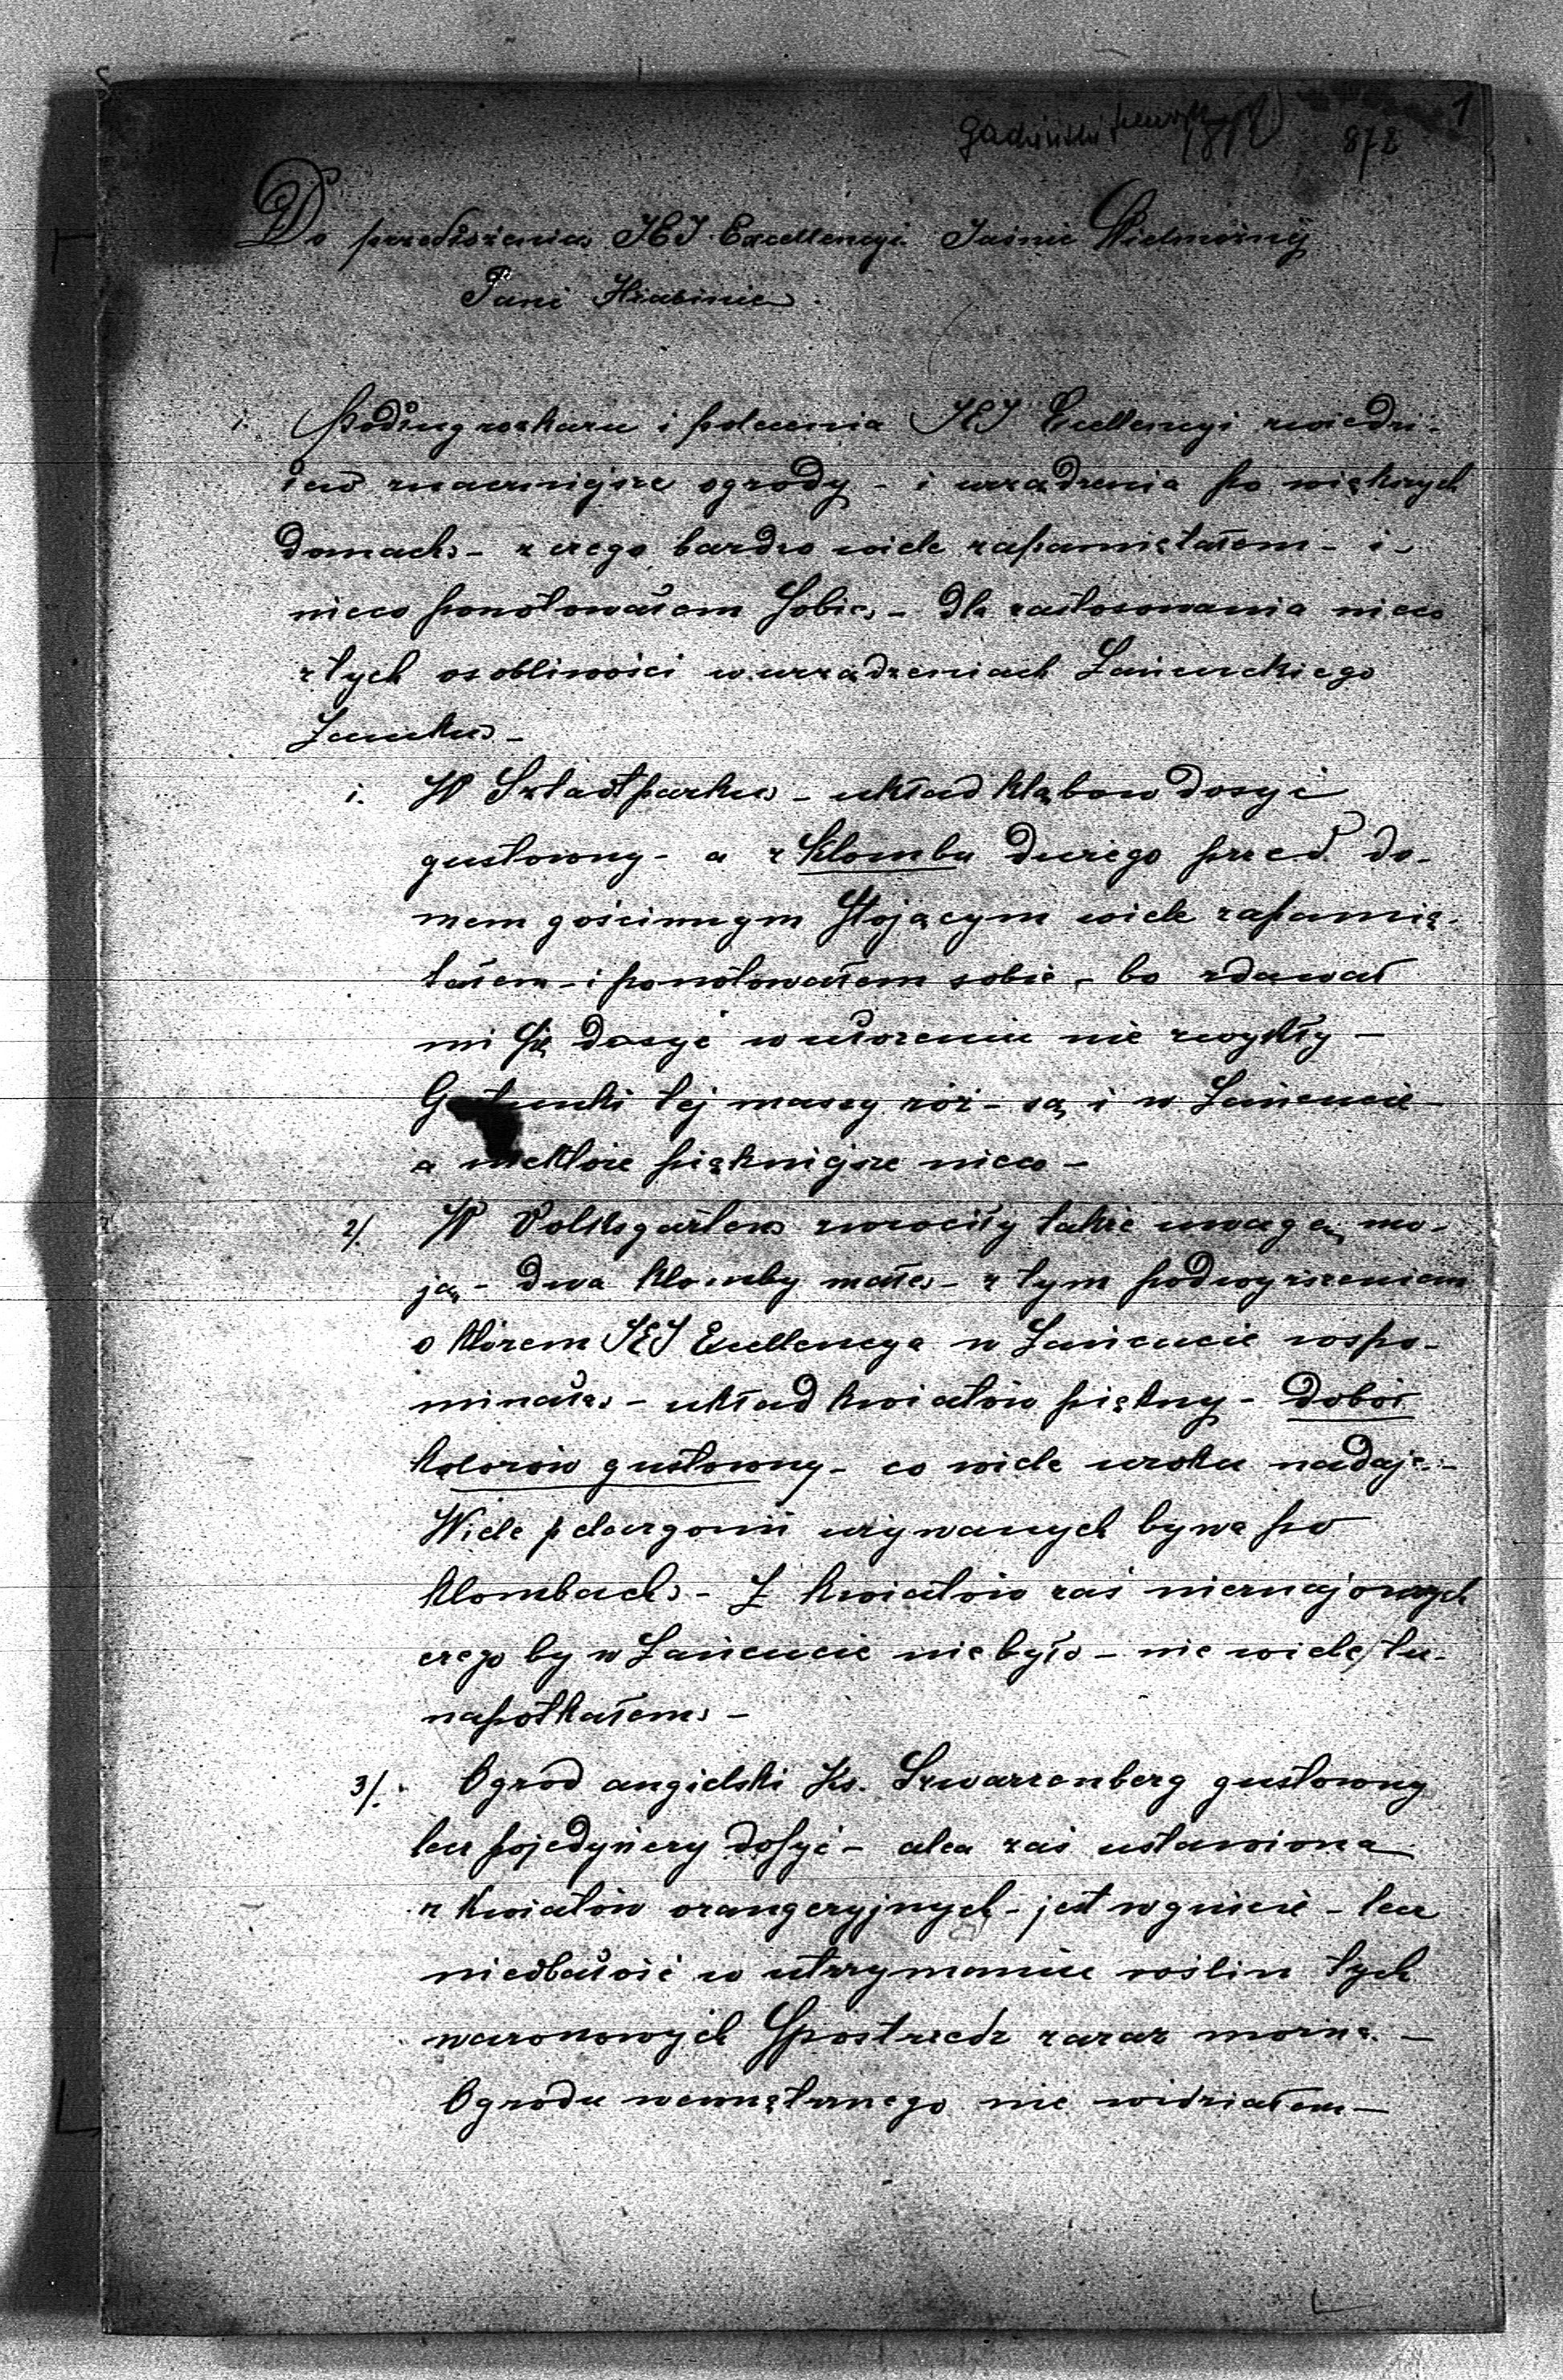 1
872
Do przedłożenia JEJ Excellencyi Jaśnie Wielmożnéj
Pani Hrabinie
1. Podług rozkazu i polecenia JEJ Excellencyi zwiedzi-
łem znaczniejsze ogrody - i urządzenia po większych
domach - z czego bardzo wiele zapamiętałem - i
nieco ponotowałem sobie - dla zastosowania nieco
z tych osobliwości w urządzeniach Łańcuckiego
Zamku -
1. W Sztatparku - układ kląbow dosyć
gustowny - a z Klombu dużego przed do-
mem gościnnym stojącym wiele zapamię-
tałem - i ponotowałem sobie - bo zdawał
mi się dosyć w ułożeniu nie zwykły -
Gatunki tej massy róż - są i w Łańcucie
a niektóre piękniejsze nieco -
2/. W Volksgarten zwrociły także uwagę mo-
ją - dwa klomby małe - z tym podwyższeniem
o którem JEJ Excellencya w Łańcucie wspo-
minała - układ kwiatów piękny - dobór
kolorów gustowny - co wiele uroku nadaje -
Wiele pelargonii używanych bywa po
klombach - Z kwiatów zaś nieznajomych
czego by w Łańcucie nie było - nie wiele tu
napotkałem -
3/. Ogrod angielski Ks. Szwarzenberg gustowny
lecz pojedyńczy dosyć - alea zaś ustawiona
z kwiatów orangeryjnych - jest w guście - lecz
niedbałość w utrzymaniu roślin tych
wazonowych spostrzedz zaraz można -
Ogrodu wewnętrznego nie widziałem -